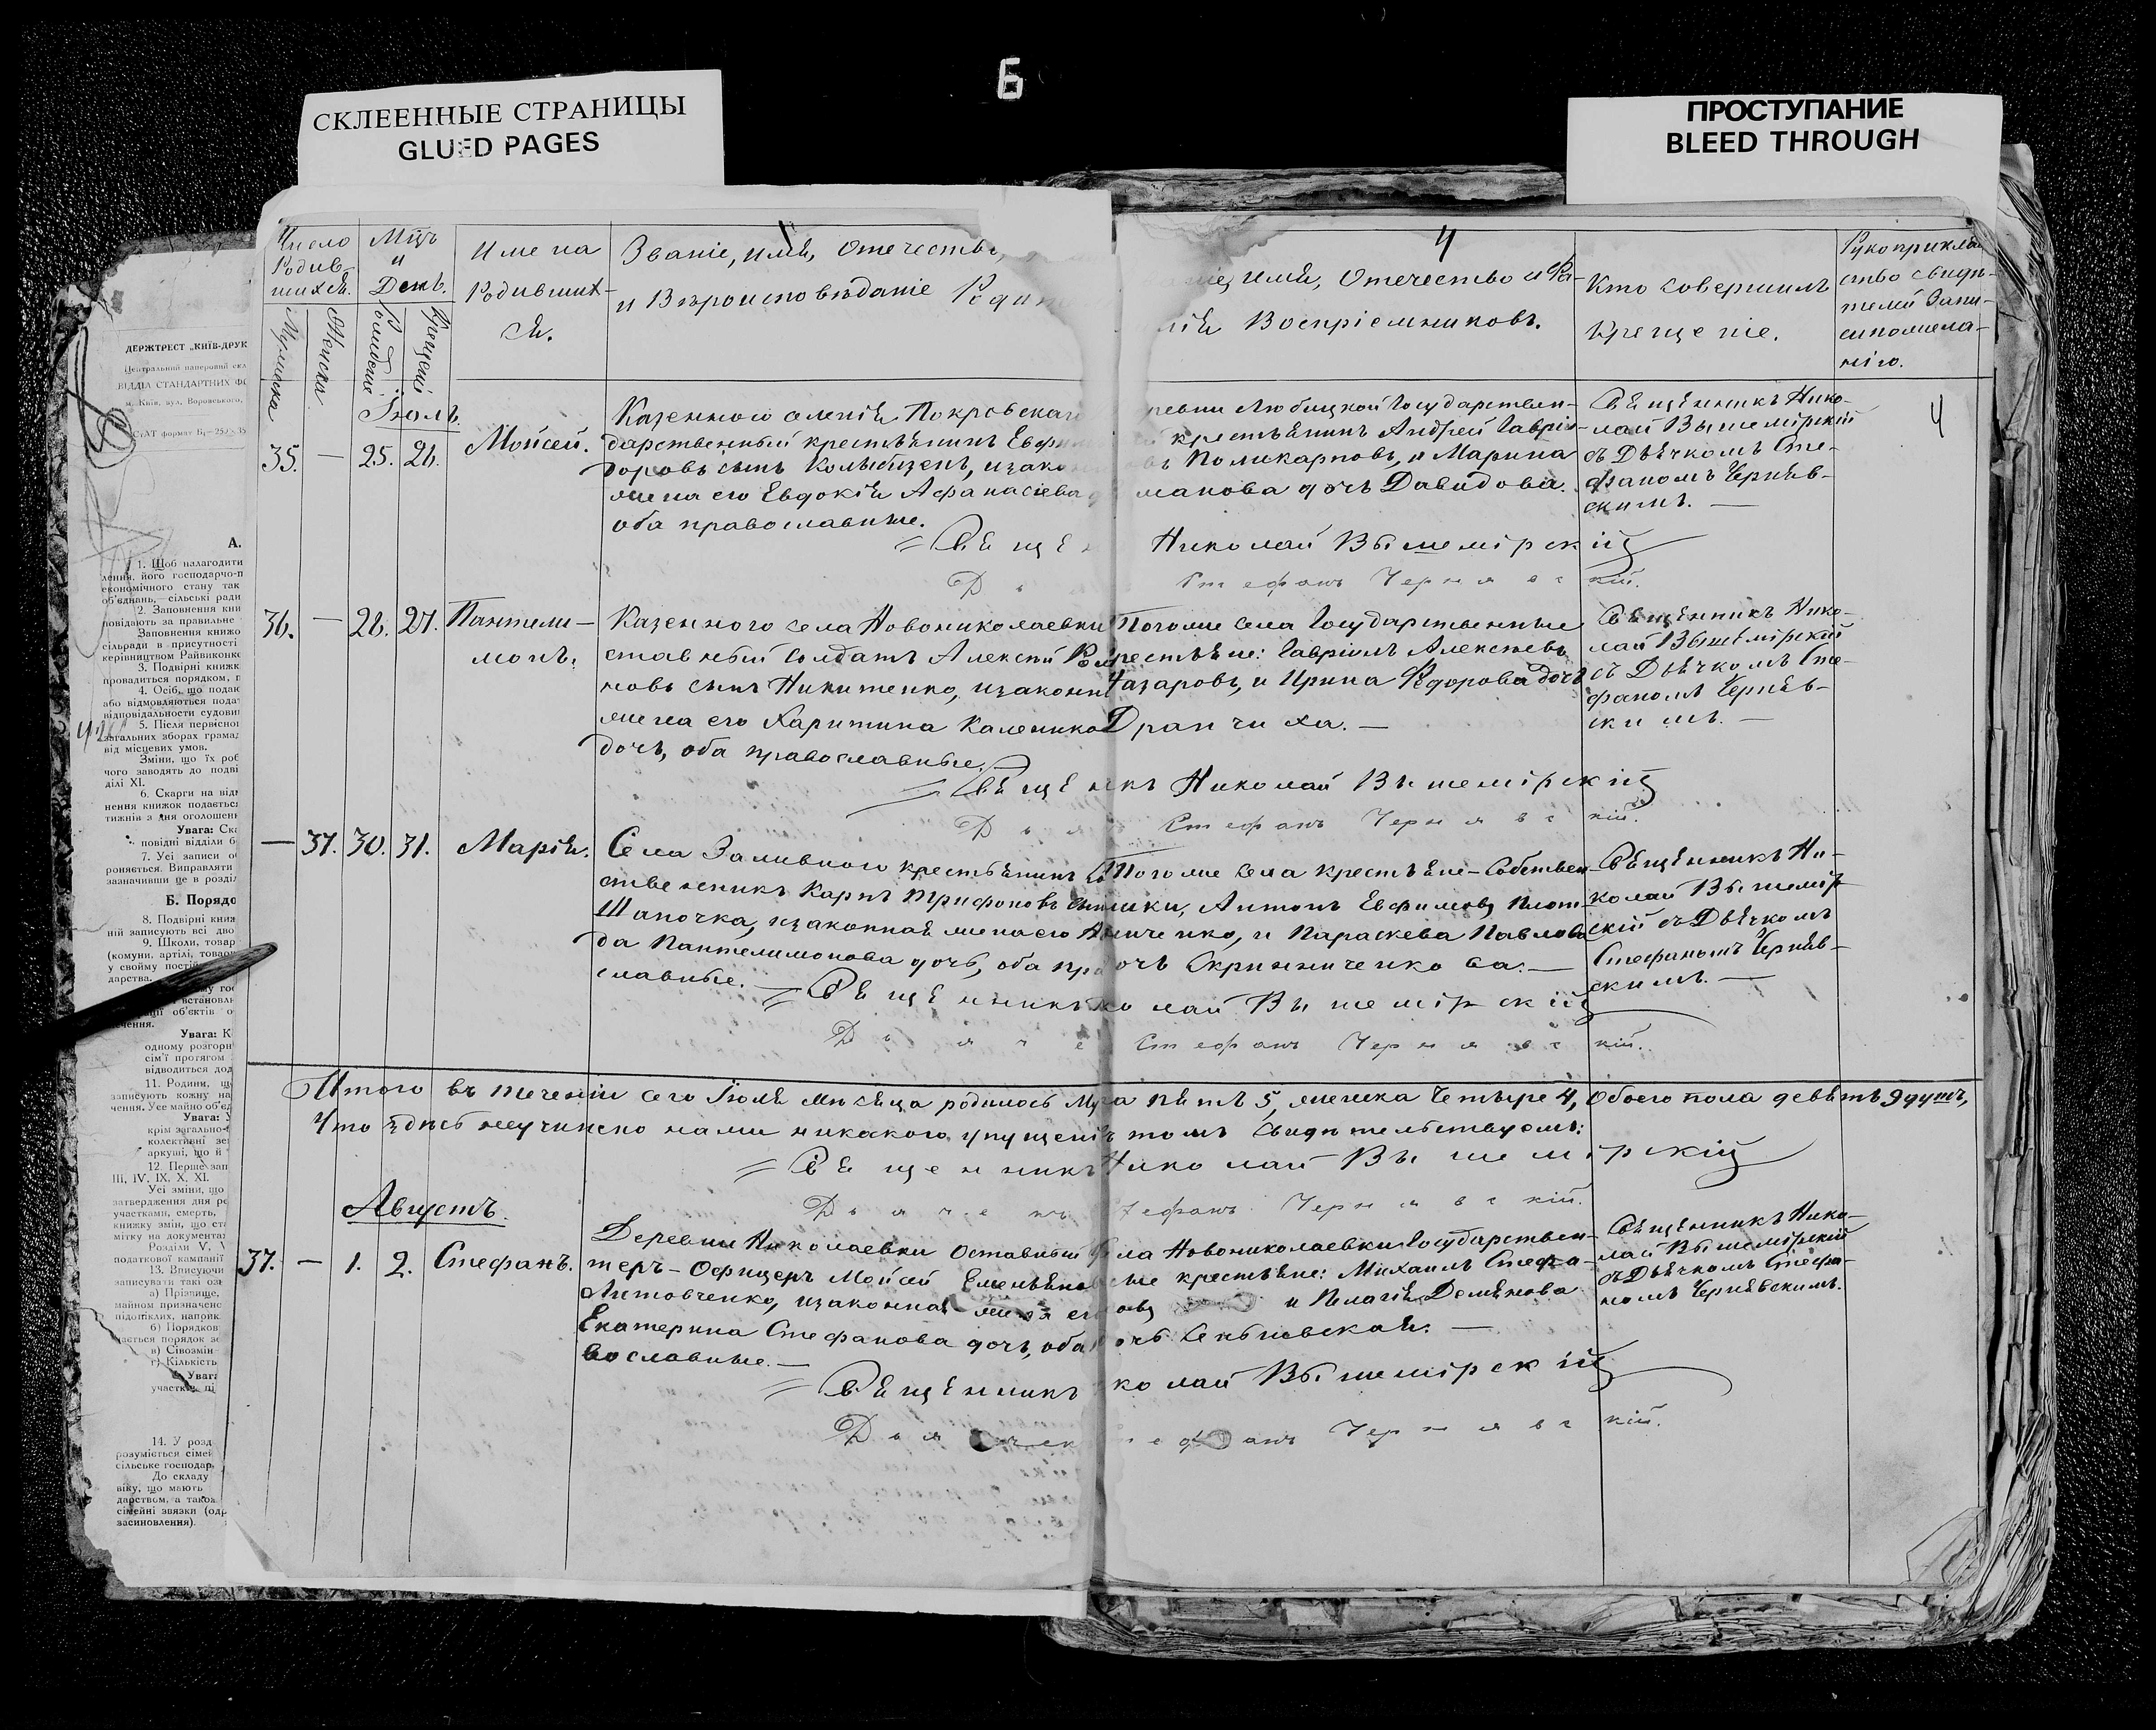 Б
СКЛЕЕННЫЕ СТРАНИЦЫ
GLUED PAGES
ПРОСТУПАНИЕ
BLEED THROUGH
ДЕРЖТРЕСТ „КИЇВ-ДРУК
ВІДДІЛ СТАНДАРТНИХ
м. Київ, вул. Воровського,
А.
1. Щоб налагодити
його господарчо-п
економічного стану так
об'єднань, сільські ради
2. Заповнення кни
повідають за правильне
Заповнення книжо
сільради в присутності
керівництвом Райвиконк
3. Подвірні книжк
провадиться порядком, п
4. Осіб, що подаю
або відмовляються пода
відповідальности судови
5. Після первісної
загальних зборах грома
від місцевих умов.
Зміни, що їх роб
чого заводять до подві
ділі XI.
6. Скарги на від
нення книжок подаєтьс
тижнів з дня оголошен
Увага: Ска
повідні відділи б
7. Усі записи о
роняється. Виправляти
зазначивши це в розділ
Б. Порядо
8. Подвірні книж
ній записують всі дво
9. Школи, товар
(комуни, артілі, товар
у свойму пості
дарства.
Увага: К
одному розгорн
сім'ї протягом
відводиться дод
11. Родини, щ
записують кожну на
чення. Усе майно об'єд
Увага: У
крім загально-
колективні зе
аркуші, що й
12. Перше зап
III, IV, IX, X, XI.
Усі зміни, що
затвердження дня ре
участками, смерть,
книжку змін, що ста
мітку на документа
Розділи V, V
податкової кампанії
13. Вписуючи
записувати такі озн
а) Прізвище,
майном призначено
підопілких, наприк
б) Порядков
в) Сівозмін
г) Кількість
Увага
участки, пі
14. У розд
розуміється сімей
сільське господар
До складу
віку, що мають
дарством, а також
сімейні звязки (одр
засиновлення).
Число Родив-шихся.
Мцъ и День.
Имена Родивших-ся.
Званіе, имя, Отечество,
и Вѣроисповѣданіе Роди
4
имя, Отечество и Фа-
лія Воспріемниковъ.
Кто совершилъ
Крещеніе.
Рукоприкла
ство свидѣ-
телей Запи-
си по желa-
нію.
Мужеска
Женска
Рожденіе
Крещеніе
Іюль.
35. — 25. 26. Мойсей.
Казенного селенія Покровскаго
дарственный крестьянинъ Евфи
доровъ сынъ Колыбизенъ, и зако
жена его Евдокія Афанасіева
оба православные.
ревни Любицкой Государствен-
крестьянинъ Андрей Гаврі-
въ Поликарповъ, и Марина
манова дочь Давидова.
Священникъ Нико-
лай Вышемірскій
съ Дьячкомъ Сте-
фаномъ Черняв-
скимъ. —
4
Свяще Николай Вышемірскій
Д Стефанъ Чернявскій.
36. — 26. 27. Пантели-
монъ.
Казенного села Новониколаевки
ставный Солдатъ Алексѣй
новъ сынъ Никитенко, и законн
жена его Харитина Каленико
дочь, оба православные.
Того же села Государственные
крестьяне: Гавріилъ Алексѣевъ
Назаровъ, и Ирина Федорова дочь
Дранчиха. —
Священникъ Нико-
лай Вышемірскій
съ Дьячкомъ Сте-
фаномъ Черняв-
скимъ. —
Священникъ Николай Вышемірскій
Дья Стефанъ Чернявскій.
— 37. 30. 31. Марія.
Села Заливного крестьянинъ Со
ственникъ Карпъ Трифоновъ сынъ
Шапочка, и законная жена его
да Пантелимонова дочь, оба пра
славные. —
Того же села крестьяне-Собствен
ники, Антонъ Евфимовъ Плот-
ниченко, и Параскева Павлова
дочь Скринниченкова. —
Священникъ Ни-
колай Вышемір
скій съ Дьячкомъ
Стефаномъ Черняв-
скимъ. —
Священникъ Николай Вышемірскій
Дьяче Стефанъ Чернявскій.
Итого въ теченіи сего Іюля мѣсяца родилось Муж пять 5, женска Четыре 4, Обоего пола девять 9 душъ,
Что здѣсь неучинено нами никакого упущенія томъ свидѣтельствуемъ:
Священникъ Николай Вышемірскій
Дьячекъ Стефанъ Чернявскій.
Августъ.
37. — 1. 2. Стефанъ.
Деревни Николаевки Оставный
теръ-Офицеръ Мойсей Емельянов
Литовченко, и законная жена ег
Екатерина Стефанова дочь, оба
вославные. —
ла Новониколаевки Государствен-
ные крестьяне: Михаилъ Стефа-
и Пелагія Демьянова
дочь
Священникъ Нико-
лай Вышемірскій
съ Дьячкомъ Стефа-
номъ Чернявскимъ.
Священникъ Николай Вышемірскій
Дьячекъ Стефанъ Чернявскій.